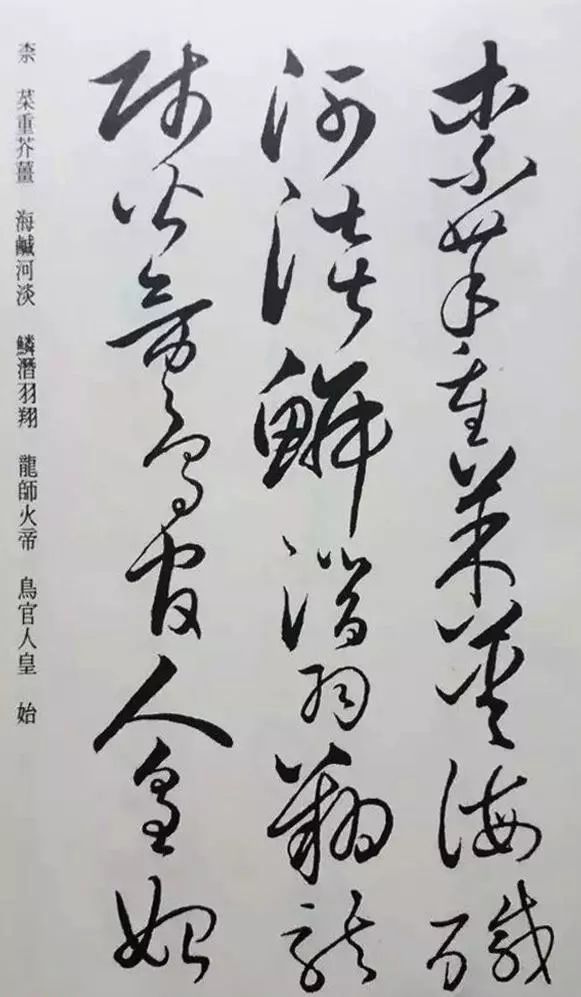 柰菜重芥薑海鹹
河淡鱗潛羽翔龍
師火帝鳥官人皇始
柰 菜重芥薑 海鹹河淡 鱗潛羽翔 龍師火帝 鳥官人皇 始